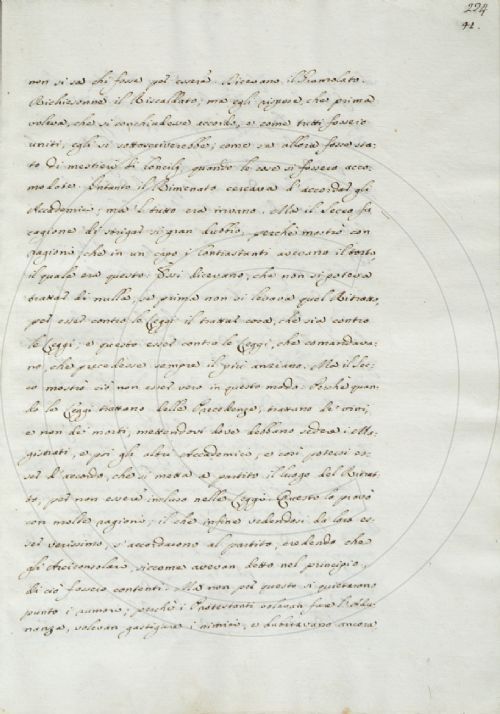 224
41.
non si sa chi fosse per essere. Ricevano il Gramolato.
Richiesonne il Riscaldato; ma egli rispose, che prima
voleva, che si conchiudesse accordo, e come tutti fossero
uniti, egli si sottoscriverebbe, come se allora fosse sta-
to di mestieri di Concilj, quando le cose si fossero acco-
modate. Intanto il Rimenato cercava d'accordar gli
Accademici; ma 'l tutto era invano. Ma il Secco fu
cagione di strigar sì gran dubbio, perchè mostrò con
ragione, che in un capo i Contrastanti avevano il torto,
il quale era questo: Essi dicevano, che non si poteva
trattar di nulla, se prima non si levava quel Ritratto,
per esser contro le Leggi il trattar cosa, che sia contro
le Leggi; e questo esser contro le Leggi, che comandava-
no, che precedesse sempre il più anziano. Ma il Sec-
co mostrò ciò non esser vero in questo modo: Perchè quan-
do le Leggi trattano delle Precedenze, trattano de' vivi,
e non dei morti, mettendovi dove debbano sedere i Ma-
gistrati, e poi gli altri Accademici, e così potersi es-
ser d'accordo, che si metta a partito il luogo del Ritrat-
to, per non essere incluso nelle Leggi. Questo lo provò
con molte ragioni; il che infine vedendosi da loro es-
ser verissimo, s'accordarono al partito, credendo che
gli Arciconsolari, siccome avevan detto nel principio,
di ciò fossero contenti. Ma non per questo si quietarono
punto i rumori; perchè i Protestanti volevan fare l'Adu-
nanza, volevan gastigare i nimici, e dubitavano ancora